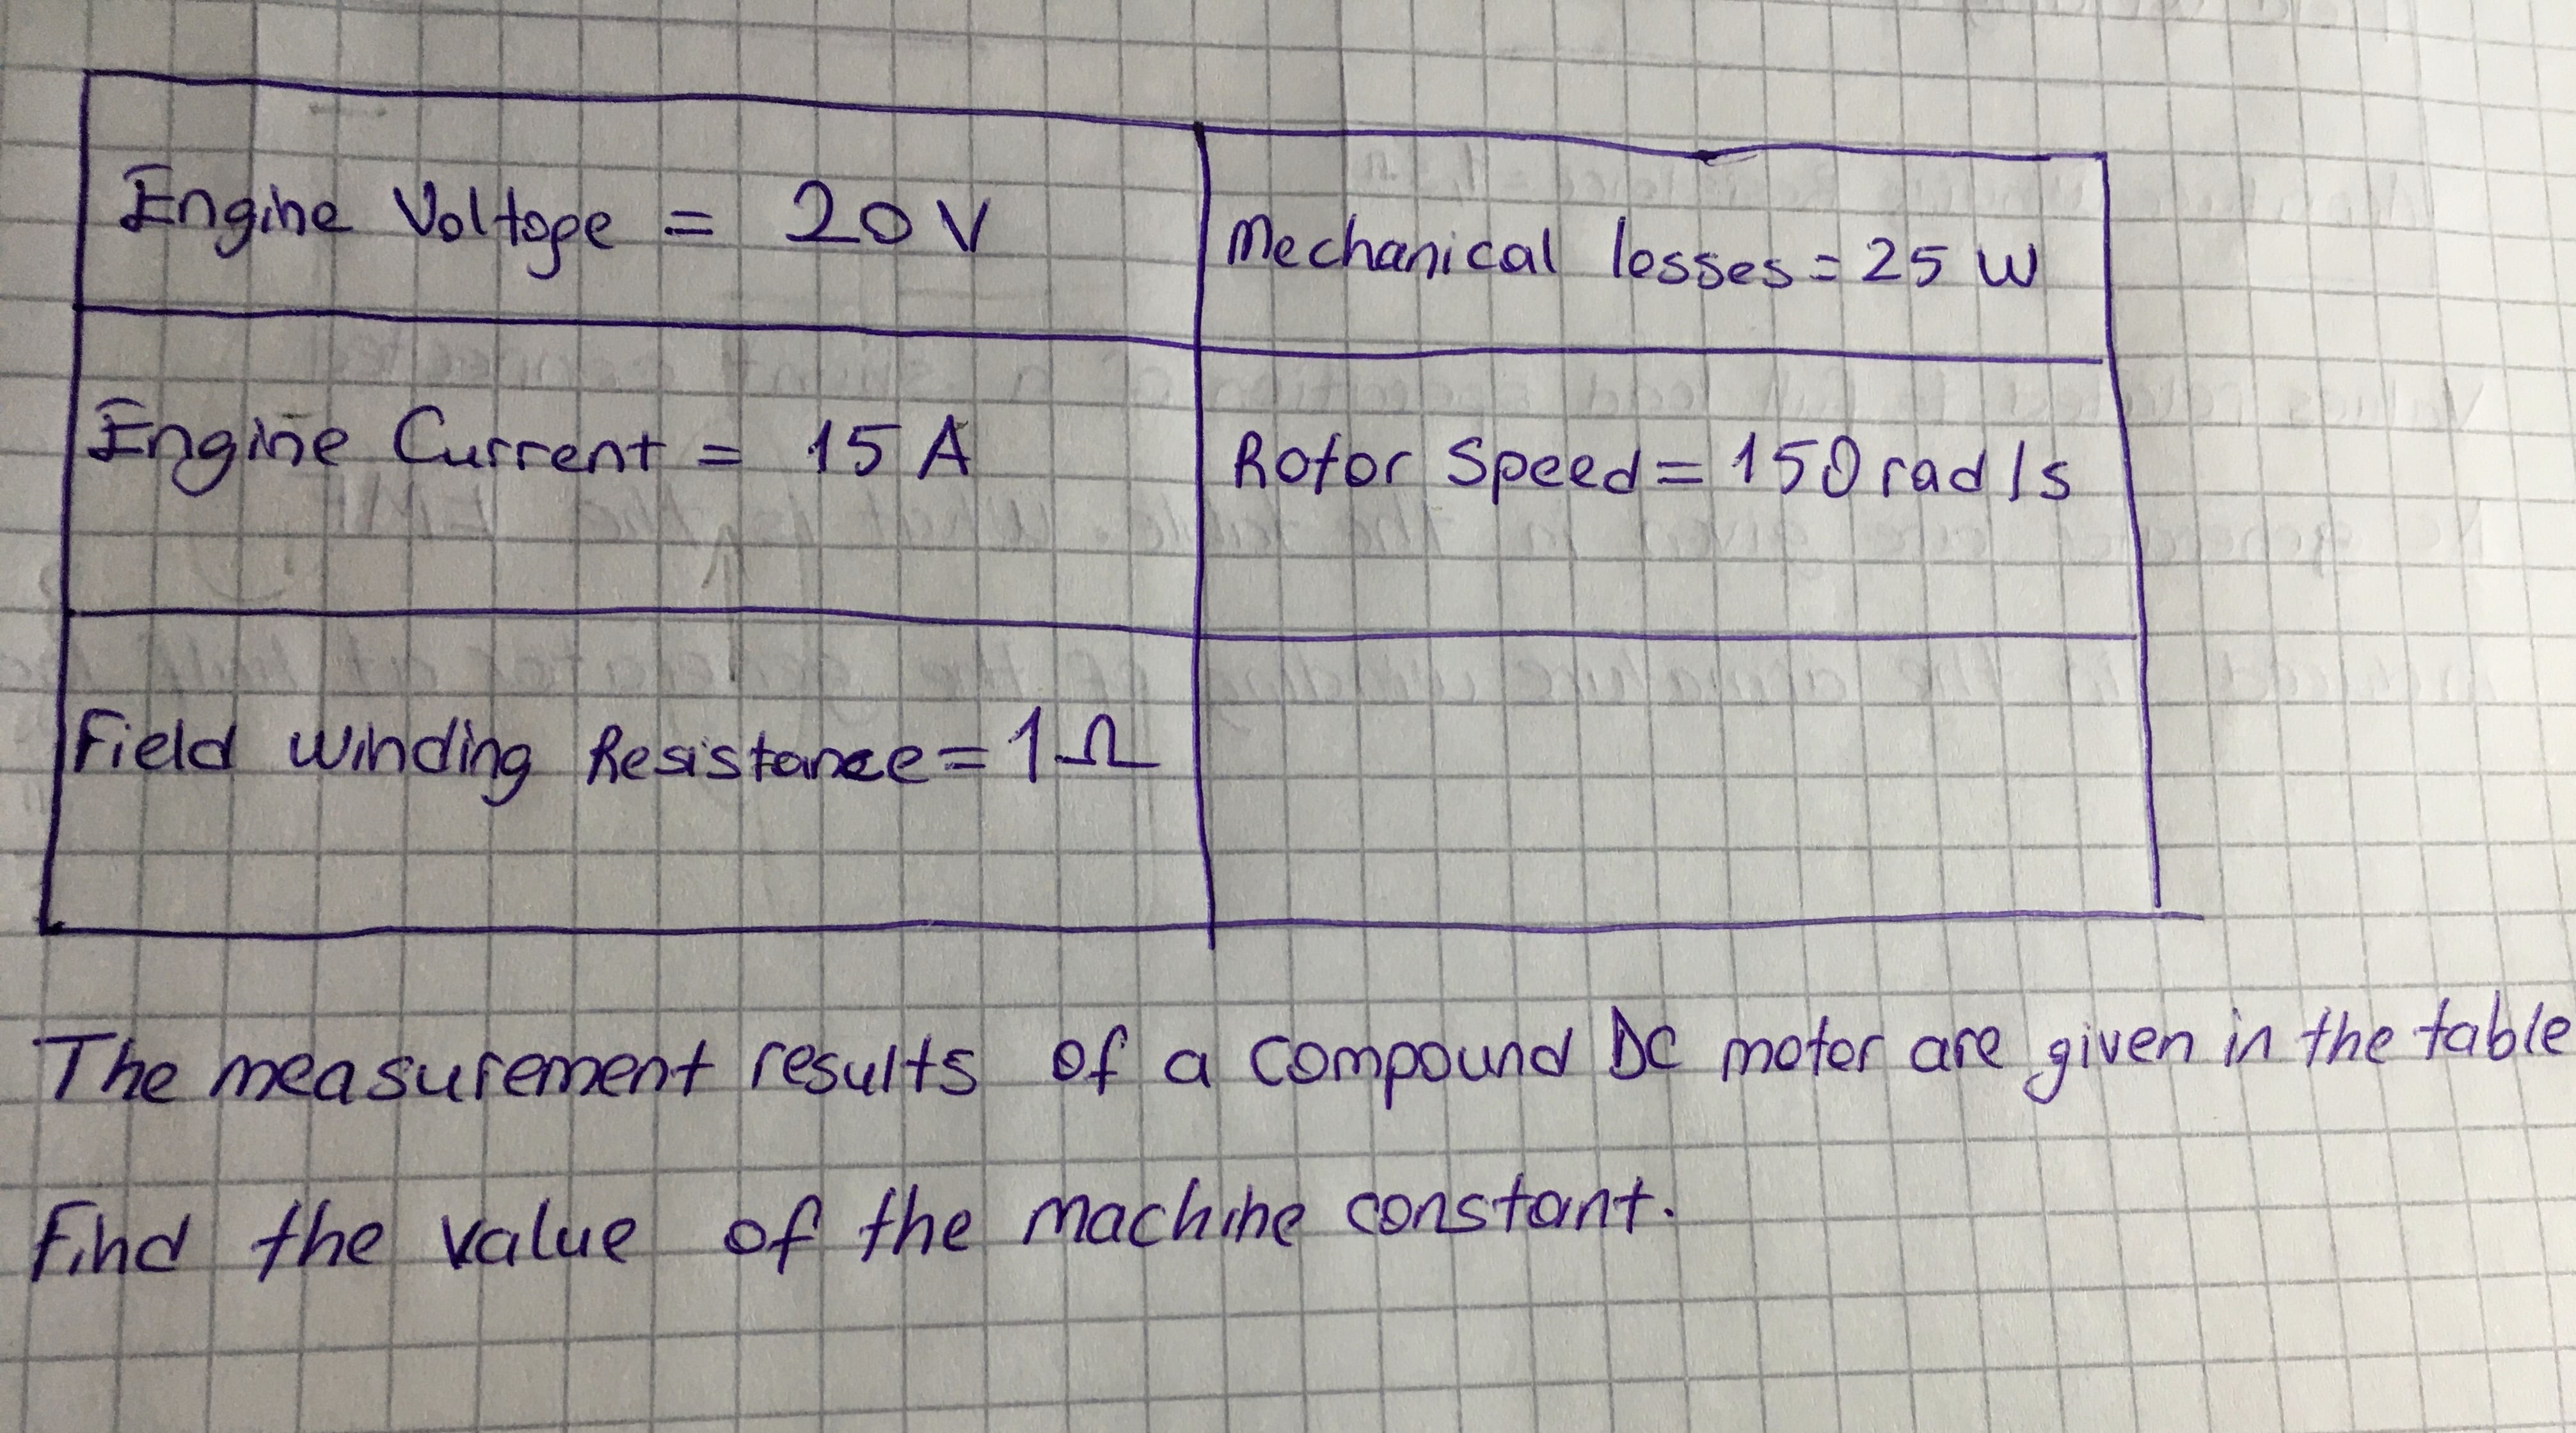 Engine Voltage = 20 V
Mechanical losses = 25 W
Engine Current = 15 A
Rotor Speed = 150 rad/s
Field winding Resistance = 1 Ω
The measurement results of a compound DC motor are given in the table
Find the value of the machine constant.